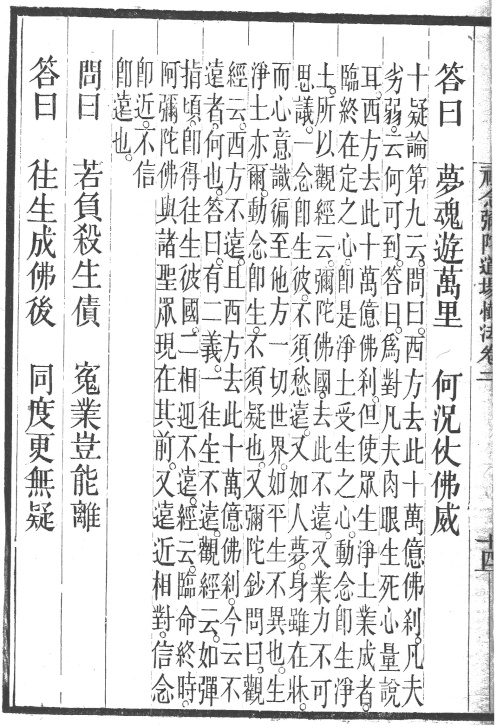 彌陀道場懺法卷二
十四
答曰　夢魂遊萬里　何況仗佛威
十疑論第九云。問曰。西方去此十萬億佛刹。凡夫
劣弱。云何可到。答曰。爲對凡夫肉眼生死心量說
耳。西方去此十萬億佛刹。但使眾生淨土業成者。
臨終在定之心。卽是淨土受生之心。動念卽生淨
土。所以觀經云。彌陀佛國。去此不遠。又業力不可
思議。一念卽生彼。不須愁遠。又如人夢。身雖在牀。
而心意識徧至他方一切世界。如平生不異也。生
淨土亦爾。動念卽生。不須疑也。又彌陀鈔問曰。觀
經云。西方不遠。且西方去此十萬億佛刹。今云不
遠者。何也。答曰。有二義。一往生不遠。觀經云。如彈
指頃。卽得往生彼國。二相迎不遠。經云。臨命終時。
阿彌陀佛與諸聖眾現在其前。又遠近相對。信念
卽近。不信
卽遠也。
問曰　若負殺生債　寃業豈能離
答曰　往生成佛後　同度更無疑